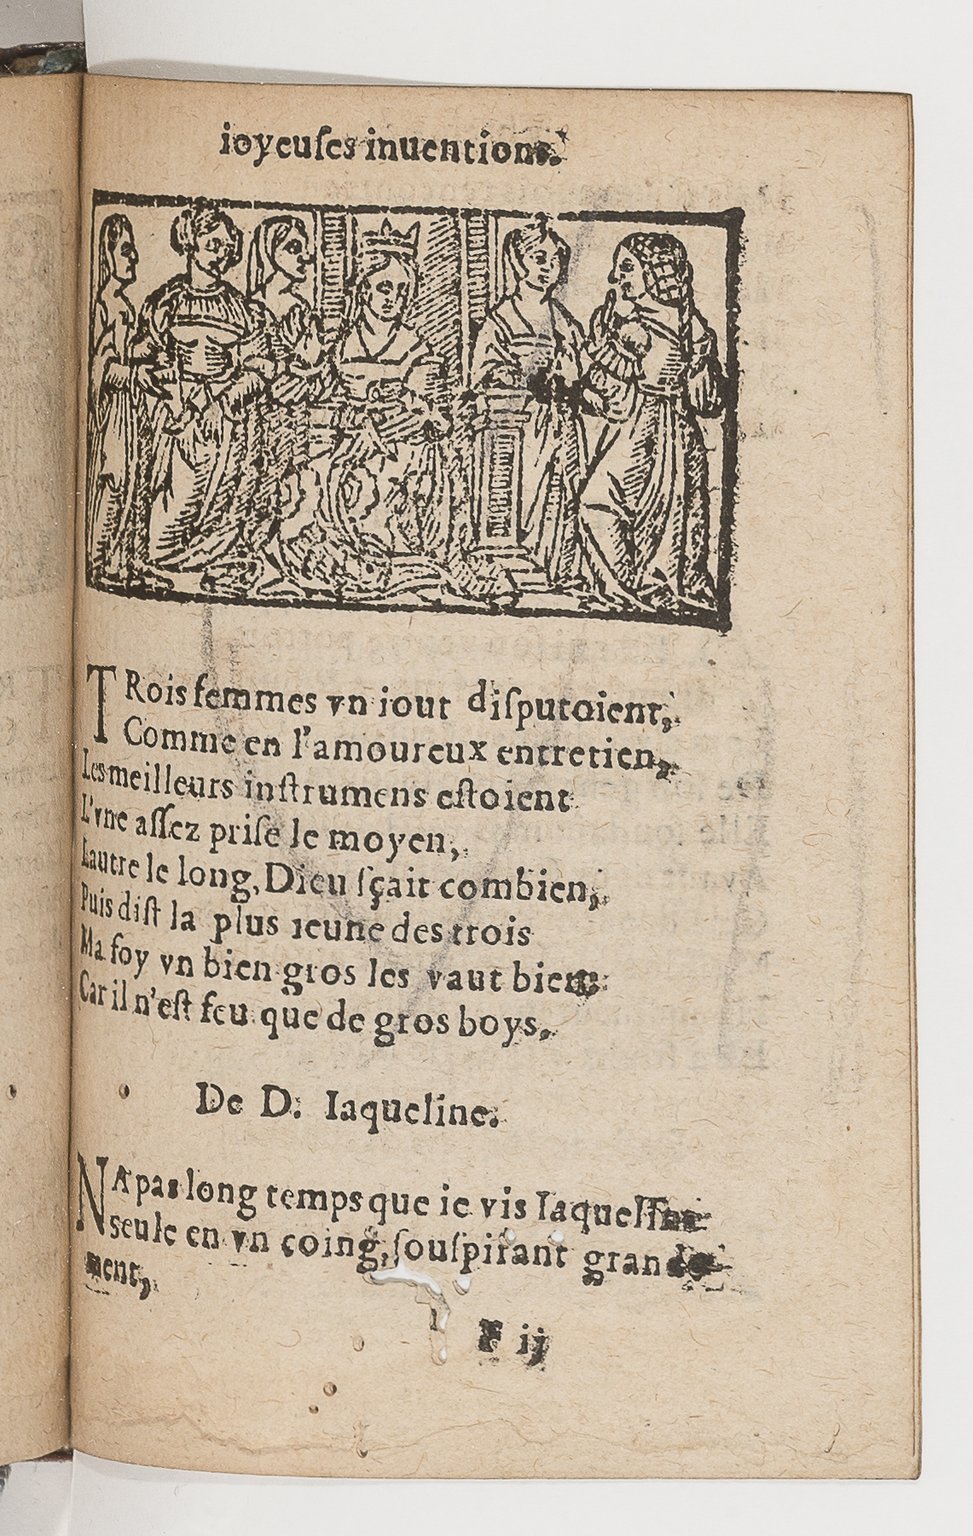 ioyeuſes inuentions.
TRois femmes vn iour diſputoient,
Comme en l'amoureux entretien,
Les meilleurs inſtrumens eſtoient
L'vne aſſez priſe le moyen,
Lautre le long, Dieu ſçait combien,
Puis diſt la plus ieune des trois
Ma foy vn bien gros les vaut bien:
Car il n'eſt feu que de gros boys.
De D. Iaqueline.
NA pas long temps que ie vis Iaqueline
seule en vn coing, ſouſpirant grande
ment,
F ij